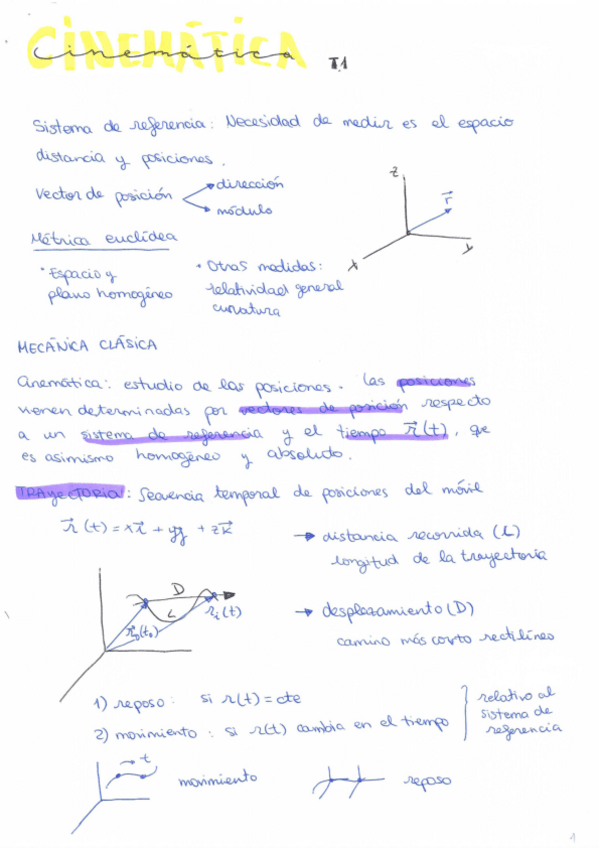 CINEMÁTICA
Cinemática T.1
Sistema de referencia: Necesidad de medir es el espacio
distancia y posiciones.
Vector de posición
dirección
módulo
z
r
x
y
Métrica euclídea
• Espacio y
plano homogéneo
• Otras medidas:
relatividad general
curvatura
MECÁNICA CLÁSICA
Cinemática: estudio de las posiciones. Las posiciones
vienen determinadas por vectores de posición respecto
a un sistema de referencia y el tiempo r(t), que
es asimismo homogéneo y absoluto.
TRAYECTORIA: Secuencia temporal de posiciones del móvil
r(t) = xi + yj + zk
→ distancia recorrida (L)
longitud de la trayectoria
D
L
r₀(t₀)
ri(t)
→ desplazamiento (D)
camino más corto rectilíneo
1) reposo: si r(t) = cte
2) movimiento: si r(t) cambia en el tiempo
relativo al
sistema de
referencia
→ t
movimiento
reposo
1